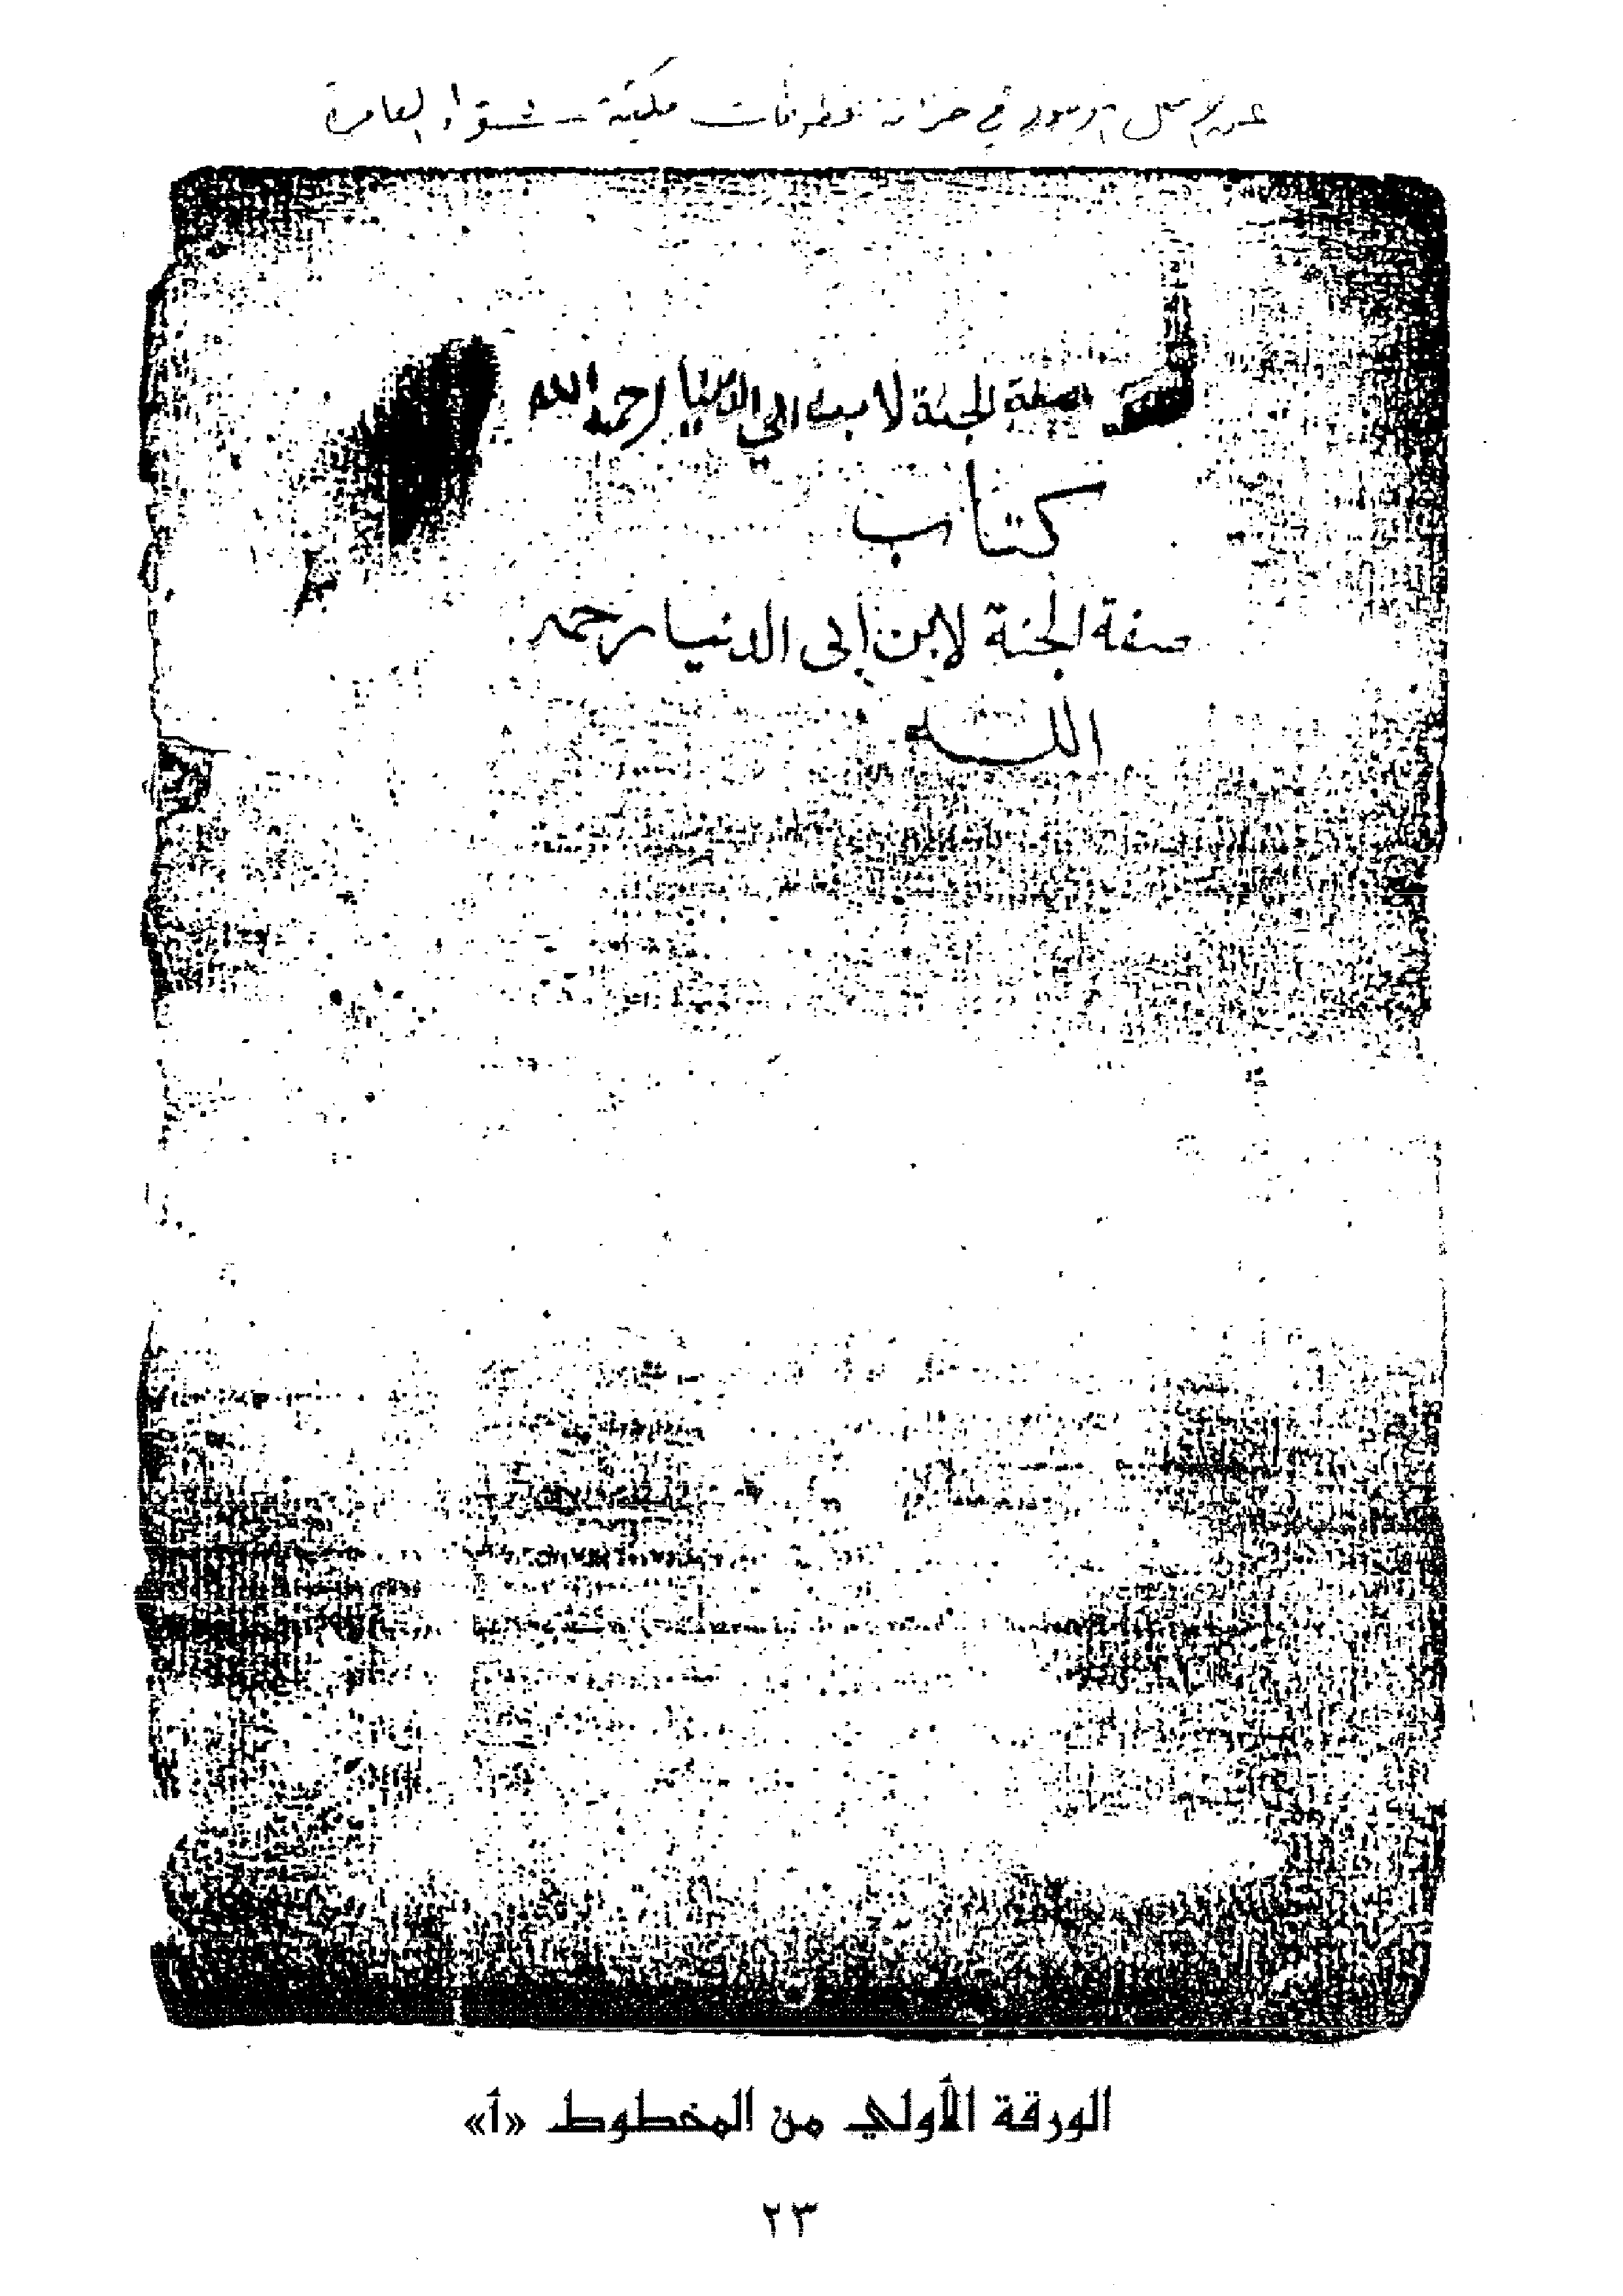 عن الأصل الموجود في خزانة مخطوطات مكتبة - العامرة
صفة الجنة لابن ابي الدنيا رحمه الله
كتاب
صفة الجنة لابن أبى الدنيا رحمه
الله
الورقة الأولي من المخطوط «أ»
٢٣